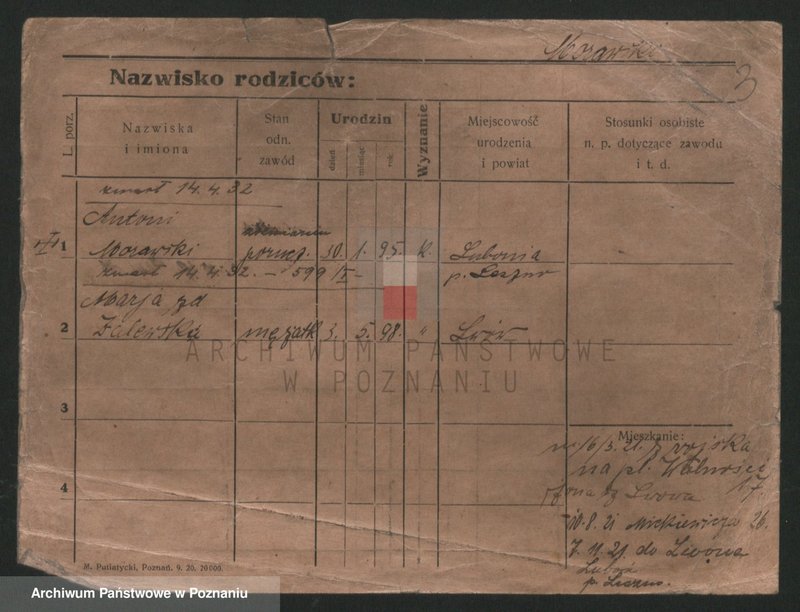 Morawski
3
Nazwisko rodziców:
L. porz.
Nazwiska
i imiona
Stan
odn.
zawód
Urodzin
dzień
miesiąc
rok
Wyznanie
Miejscowość
urodzenia
i powiat
Stosunki osobiste
n. p. dotyczące zawodu
i t. d.
zmarł 14.4.32
Antoni
1
Morawski 30. 1. 95. k. Lubonia
zmarł 14.4.32. – 599
p. Leszno
Marja zd
2
Zalewska mężatk 3. 5. 98. " Lwów
ARCHIWUM PAŃSTWOWE
W POZNANIU
3
4
Mieszkanie:
16/3. 21. z wojska
na pl. Wolności
17.
żona ze Lwowa
10.8.21 Mickiewicza 26.
7.11.21 do
Lubonia
p. Leszno.
M. Putiatycki, Poznań. 9. 20. 20000.
Archiwum Państwowe w Poznaniu